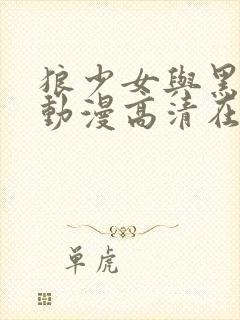 狼少女與黑
動漫高清在
单虎